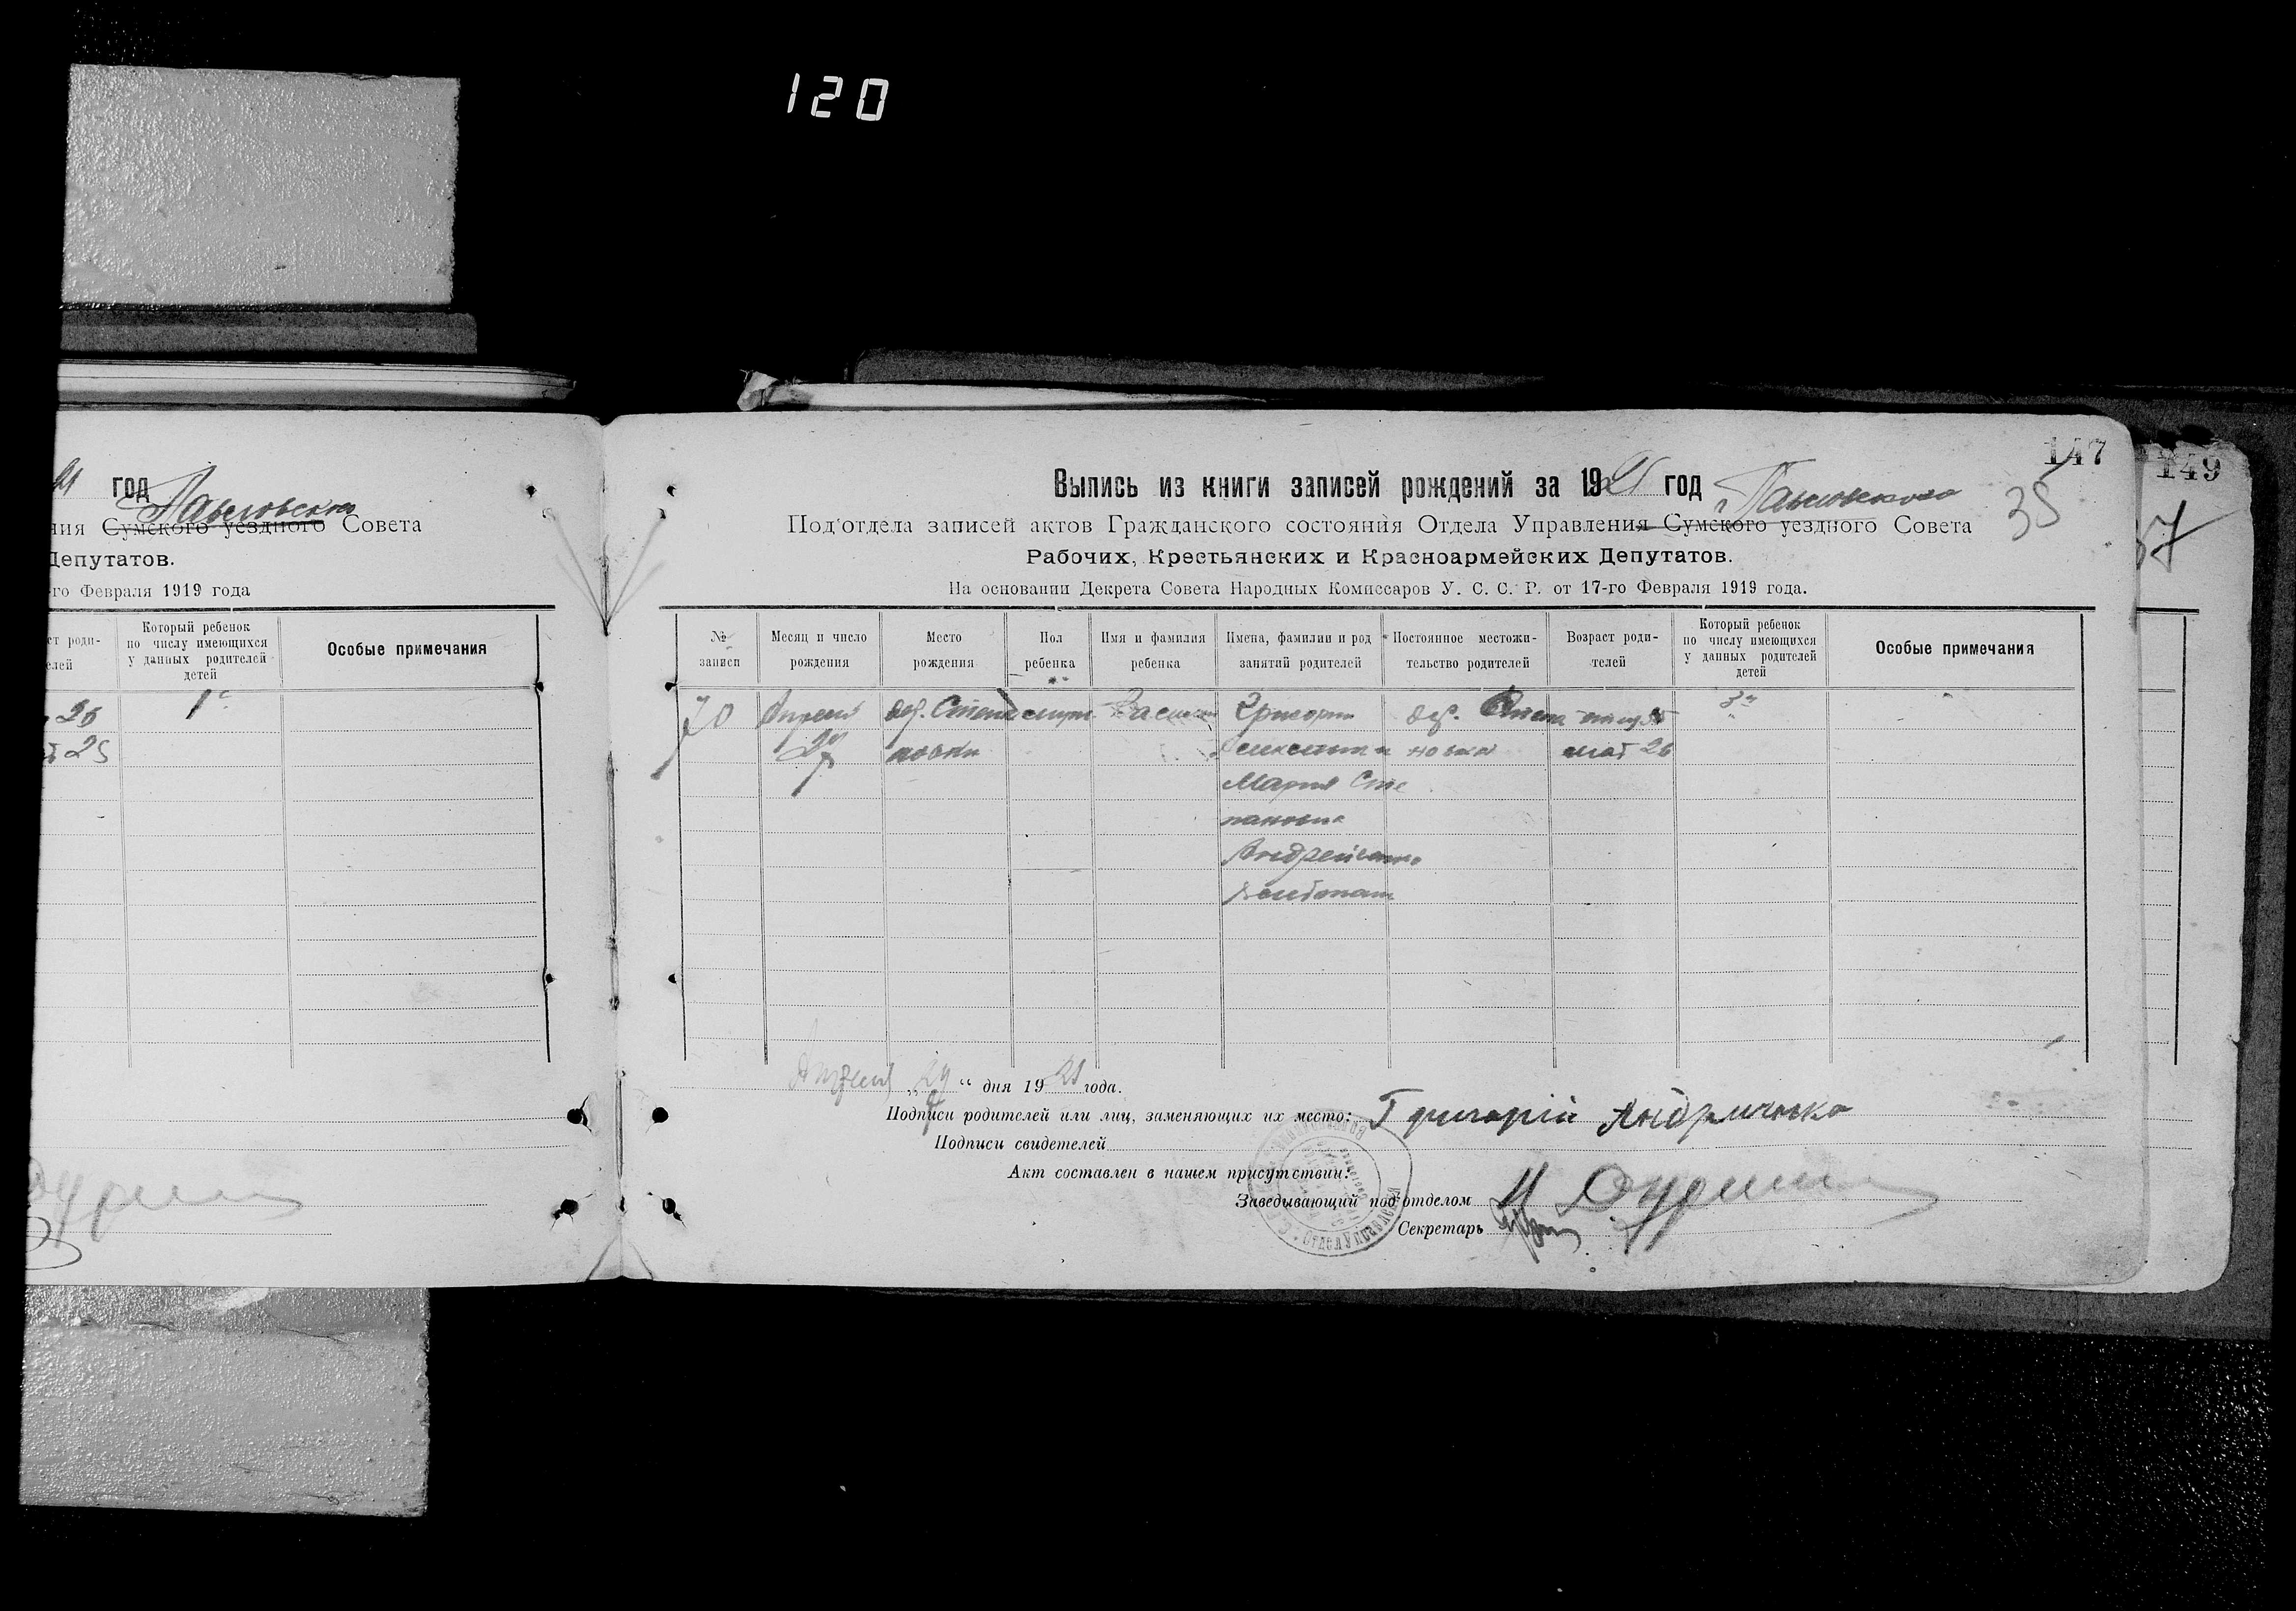 120
год Павловского
ния Сумского уездного Совета
Депутатов.
го Февраля 1919 года
ст роди-
елей
Который ребенок
по числу имеющихся
у данных родителей
детей
Особые примечания
26
1
25
147
149
35
37
Выпись из книги записей рождений за 1921 год Павловского
Под'отдела записей актов Гражданского состояния Отдела Управления Сумского уездного Совета
Рабочих, Крестьянских и Красноармейских Депутатов.
На основании Декрета Совета Народных Комиссаров У. С. С. Р. от 17-го Февраля 1919 года.
№
записи
Месяц и число
рождения
Место
рождения
Пол
ребенка
Имя и фамилия
ребенка
Имена, фамилии и род
занятий родителей
Постоянное местожи-
тельство родителей
Возраст роди-
телей
Который ребенок
по числу имеющихся
у данных родителей
детей
Особые примечания
70 Апреля дер. Степа Григории дер. Степа 3
новки новка мат 26
Мария Сте
пановна
Андрейченко
Апреля дня 1921 года.
Подписи родителей или лиц, заменяющих их место: Григорій Андриченко
Подписи свидетелей
Акт составлен в нашем присутствии:
Заведывающий под'отделом
Секретарь